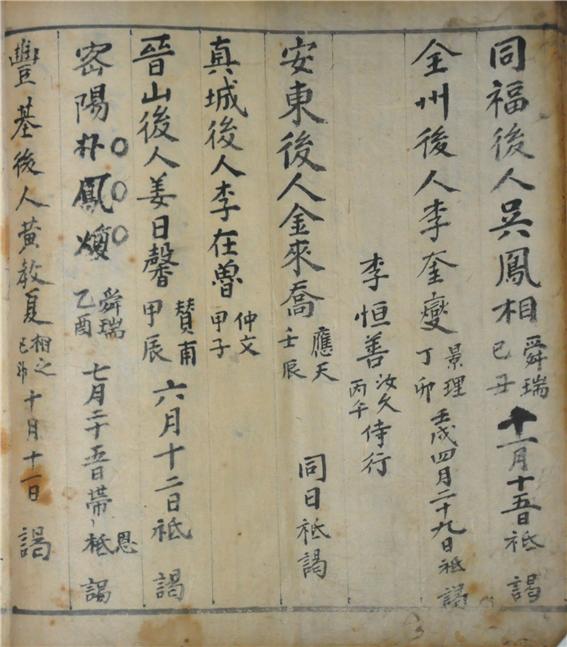 同福後人吳鳳相 舜瑞 己丑 十一月十五日祗謁
全州後人李奎燮 景理 丁卯 壬戌四月二十九日祗謁
李恒善 汝久 丙午 侍行
安東後人金來喬 應天 壬辰 同日祗謁
真城後人李在魯 仲文 甲子
晉山後人姜日馨 贊甫 甲辰 六月十二日祗謁
密陽朴鳳煥 舜瑞 乙酉 七月二十五日帶恩祗謁
豐基後人黃敎夏 相之 己卯 十月十一日 謁